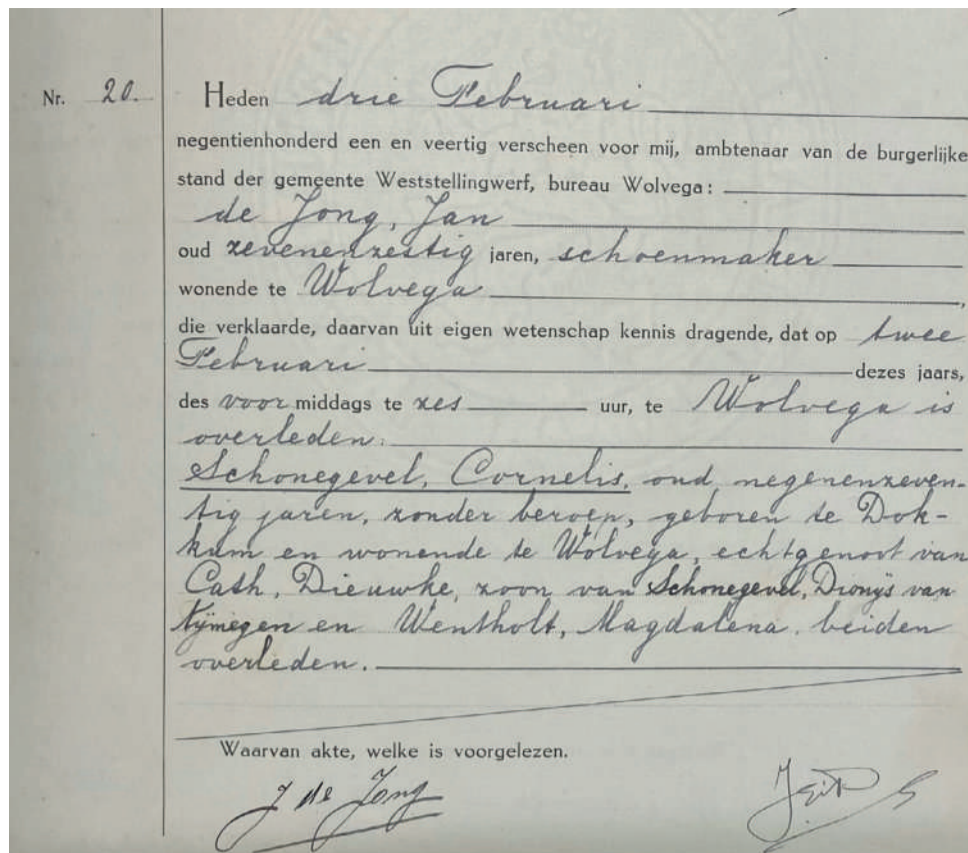 Nr. 20. Heden drie Februari
negentienhonderd een en veertig verscheen voor mij, ambtenaar van de burgerlijke
stand der gemeente Weststellingwerf, bureau Wolvega:
de Jong, Jan
oud zevenenzestig jaren, schoenmaker
wonende te Wolvega,
die verklaarde, daarvan uit eigen wetenschap kennis dragende, dat op twee
Februari dezes jaars,
des voormiddags te zes uur, te Wolvega is
overleden:
Schonegevel, Cornelis, oud negenenzeven-
tig jaren, zonder beroep, geboren te Dok-
kum en wonende te Wolvega, echtgenoot van
Cath, Dieuwke, zoon van Schonegevel, Dionijs van
Nijmegen en Wentholt, Magdalena, beiden
overleden.
Waarvan akte, welke is voorgelezen.
J de Jong